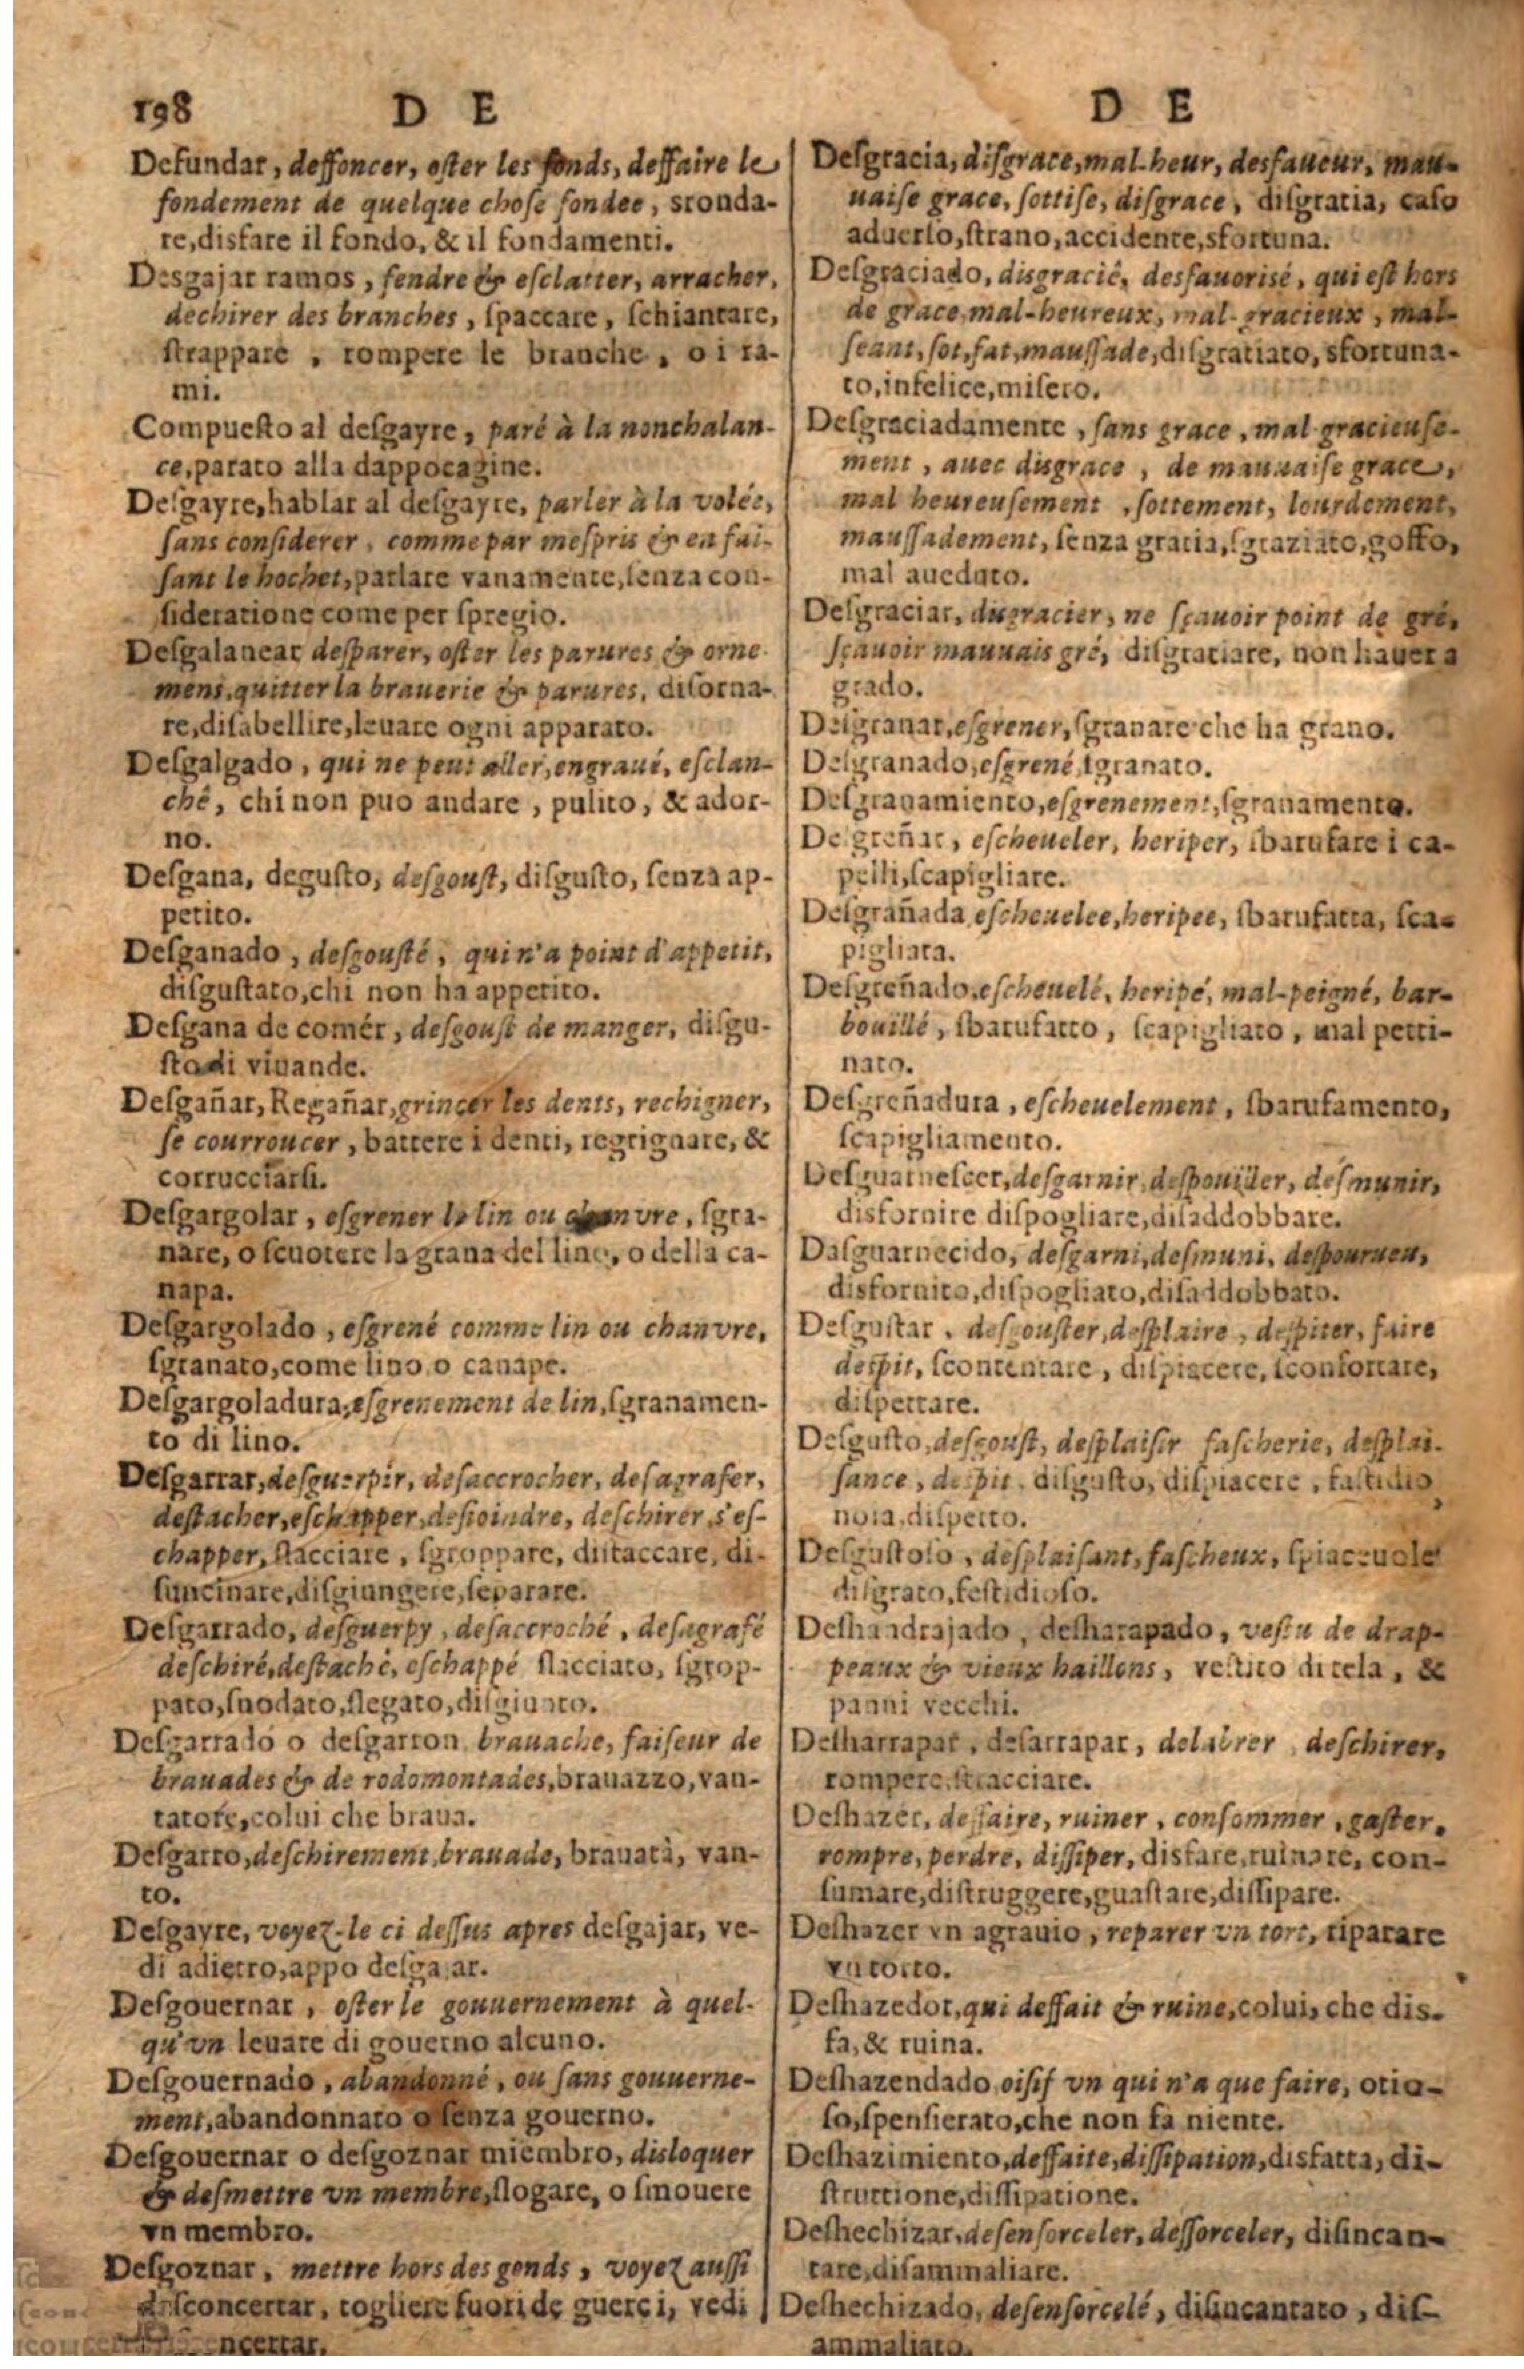 198 D E
Defundar, deffoncer, oſter les fonds, deffaire le
fondement de quelque choſe fondee, sfonda-
re,disfare il fondo, & il fondamenti.
Desgajar ramos, fendre & eſclatter, arracher,
dechirer des branches, ſpaccare, ſchiantare,
ſtrappare, rompere le branche, o i ra-
mi.
Compueſto al deſgayre, paré à la nonchalan-
ce,parato alla dappocagine.
Deſgayre,hablar al deſgayre, parler à la volée,
ſans conſiderer, comme par meſpris & en fai-
ſant le hochet,parlare vanamente,ſenza con-
ſideratione come per ſpregio.
Deſgalanear deſparer, oſter les parures & orne
mens,quitter la brauerie & parures, diſorna-
re,diſabellire,leuare ogni apparato.
Deſgalgado, qui ne peut aller,engraué, eſclan-
ché, chi non puo andare, pulito, & ador-
no.
Deſgana, deguſto, deſgouſt, diſguſto, ſenza ap-
petito.
Deſganado, deſgouſté, qui n'a point d'appetit,
diſguſtato,chi non ha appetito.
Deſgana de comér, deſgouſt de manger, diſgu-
ſto di viuande.
Deſgañar, Regañar,grincer les dents, rechigner,
ſe courroucer, battere i denti, regrignare, &
corrucciarſi.
Deſgargolar, eſgrener le lin ou chanvre, ſgra-
nare, o ſcuotere la grana del lino, o della ca-
napa.
Deſgargolado, eſgrené comme lin ou chanvre,
ſgranato,come lino o canape.
Deſgargoladura,eſgrenement de lin,ſgranamen-
to di lino.
Deſgarrar,deſguerpir, deſaccrocher, deſagrafer,
deſtacher,eſchapper,deſioindre, deſchirer s'eſ-
chapper, ſtacciare, ſgroppare, diſtaccare, di-
ſuncinare,diſgiungere,ſeparare.
Deſgarrado, deſguerpy, deſaccroché, deſagrafé
deſchiré,deſtaché, eſchappé ſlacciato, ſgrop-
pato,ſnodato,ſlegato,diſgiunto.
Deſgarradó o deſgarron brauache, faiſeur de
brauades & de rodomontades,brauazzo,van-
tatore,colui che braua.
Deſgarro,deſchirement,brauade, brauatà, van-
to.
Deſgayre, voyez-le ci deſſus apres deſgajar, ve-
di adietro,appo deſgajar.
Deſgouernar, oſter le gouuernement à quel-
qu'vn leuare di gouerno alcuno.
Deſgouernado, abandonné, ou ſans gouuerne-
ment,abandonnato o ſenza gouerno.
Deſgouernar o deſgoznar miembro, disloquer
& deſmettre vn membre,ſlogare, o ſmouere
vn membro.
Deſgoznar, mettre hors des gonds, voyez auſſi
deſconcertar, togliere fuori de guerci, vedi
ncertar.
D E
Deſgracia, diſgrace,mal-heur, desfaueur, mau-
uaiſe grace, ſottiſe, diſgrace, diſgratia, caſo
aduerſo,ſtrano,accidente,sfortuna.
Deſgraciado, disgracié, desfauoriſé, qui eſt hors
de grace mal-heureux, mal-gracieux, mal-
ſeant, ſot,fat,mauſſade,diſgratiato, sfortuna-
to,infelice,miſero.
Deſgraciadamente, ſans grace, mal gracieuſe-
ment, auec disgrace, de mauuaiſe grace,
mal heureuſement, ſottement, lourdement,
mauſſadement, ſenza gratia,ſgraziato,goffo,
mal aueduto.
Deſgraciar, disgracier, ne ſçauoir point de gré,
ſçauoir mauuais gré, diſgratiare, non hauer a
grado.
Deſgranar,eſgrener,ſgranare che ha grano.
Deſgranado,eſgrené,ſgranato.
Deſgranamiento,eſgrenement,ſgranamento.
Deſgreñar, eſcheueler, heriper, ſbarufare i ca-
pelli,ſcapigliare.
Deſgrañada eſcheuelee,heripee, ſbarufatta, ſca-
pigliata.
Deſgreñado,eſcheuelé, heripé, mal-peigné, bar-
bouillé, ſbarufatto, ſcapigliato, mal petti-
nato.
Deſgreñadura, eſcheuelement, ſbarufamento,
ſcapigliamento.
Deſguarneſcer,deſgarnir,deſpouïller, deſmunir,
disfornire diſpogliare,diſaddobbare.
Daſguarnecido, deſgarni,deſmuni, deſpourueu,
disfornito,diſpogliato,diſaddobbato.
Deſguſtar, deſgouſter,deſplaire, deſpiter, faire
deſpit, ſcontentare, diſpiacere, ſconfortare,
diſpettare.
Deſguſto,deſgouſt, deſplaiſir faſcherie, deſplai-
ſance, deſpit, diſguſto, diſpiacere, faſtidio,
noia,diſpetto.
Deſguſtoſo, deſplaiſant,faſcheux, ſpiaceuole
diſgrato,feſtidioſo.
Deſhandrajado, deſharapado, veſtu de drap-
peaux & vieux haillons, veſtito di tela, &
panni vecchi.
Deſharrapar, deſarrapar, delabrer, deſchirer,
rompere,ſtracciare.
Deſhazer, deffaire, ruiner, conſommer, gaſter,
rompre, perdre, diſſiper, disfare,ruinare, con-
ſumare,diſtruggere,guaſtare,diſſipare.
Deſhazer vn agrauio, reparer vn tort, riparare
vn torto.
Deſhazedor,qui deffait & ruine,colui, che dis-
fa, & ruina.
Deſhazendado,oiſif vn qui n'a que faire, otio-
ſo,ſpenſierato,che non fa niente.
Deſhazimiento,deffaite,diſſipation,disfatta, di-
ſtruttione,diſſipatione.
Deſhechizar,deſenſorceler, deſſorceler, diſincan-
tare,diſammaliare.
Deſhechizado, deſenſorcelé, diſincantato, diſ-
ammaliato.